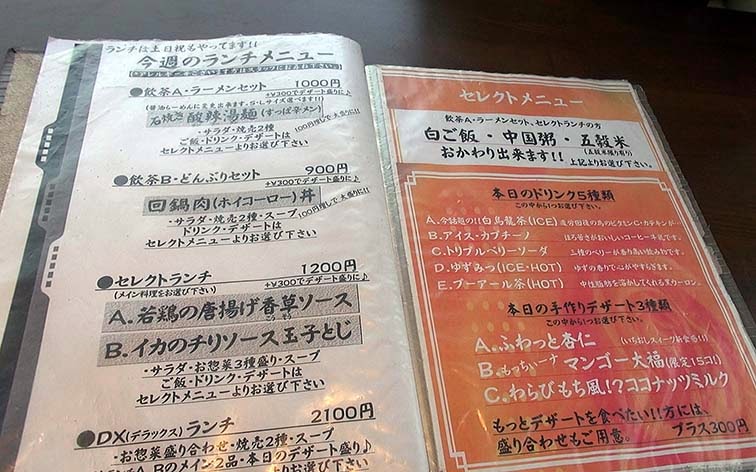 ランチは土日祝もやってます!!
今週のランチメニュー
●飲茶A・ラーメンセット 1000円
+¥300でデザート盛りに♪
(醤油らーめんに変更出来ます。S・Lサイズ選べます!!)
石焼き 酸辣湯麺(すっぱ辛メン)
・サラダ・焼売2種 100円増しで大盛りに!!
ご飯・ドリンク・デザートは
セレクトメニューよりお選び下さい
●飲茶B・どんぶりセット 900円
+¥300でデザート盛りに♪
回鍋肉(ホイコーロー)丼
・サラダ・焼売2種・スープ 100円増しで大盛りに!!
ドリンク・デザートは
セレクトメニューよりお選び下さい
●セレクトランチ 1200円
(メイン料理をお選び下さい) +¥300でデザート盛りに♪
A.若鶏の唐揚げ香草ソース
B.イカのチリソース玉子とじ
・サラダ・お惣菜3種盛り・スープ
ご飯・ドリンク・デザートは
セレクトメニューよりお選び下さい
●DX(デラックス)ランチ 2100円
・お惣菜盛り合わせ・焼売2種・スープ
A、Bのメイン2品・本日のデザート盛り♪
セレクトメニュー
飲茶A・ラーメンセット、セレクトランチの方
白ご飯・中国粥・五穀米
(五穀米限り有り)
おかわり出来ます!! 上記よりお選び下さい。
本日のドリンク5種類
この中から1つお選び下さい。
A.今話題の!!白烏龍茶(ICE) 疲労回復の為のビタミンC・カテキンが…
B.アイス・カプチーノ ほろ苦さがおいしいコーヒー牛乳です。
C.トリプルベリーソーダ 三種のベリーが香り高い飲み物です。
D.ゆずみつ(ICE・HOT) ゆずの香りで心がやすらぎます。
E.プーアール茶(HOT) 中性脂肪を溶かしてくれる黒ウーロン。
本日の手作りデザート3種類
この中から1つお選び下さい。
A.ふわっと杏仁 (いちおしスイーツ新食感!!)
B.もっちぃーナマンゴー大福(限定15コ!)
C.わらびもち風!?ココナッツミルク
もっとデザートを食べたい!!方には、
盛り合わせもご用意。 プラス300円